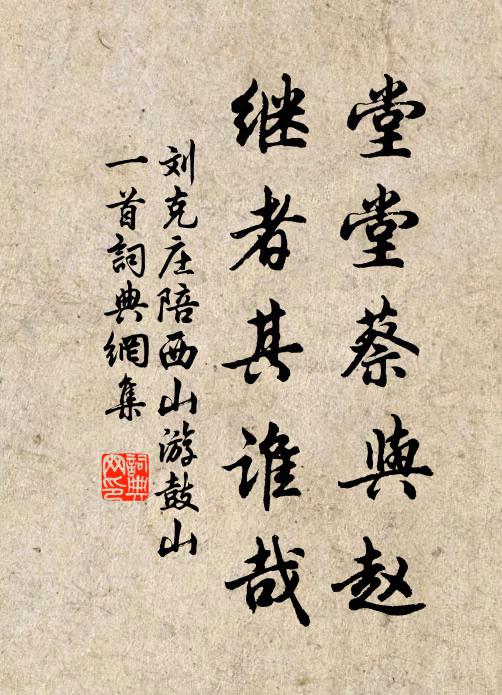 堂堂蔡與赵
继者其谁哉
刘克庄陪西山游鼓山
一首詞典網集
詞典
网印